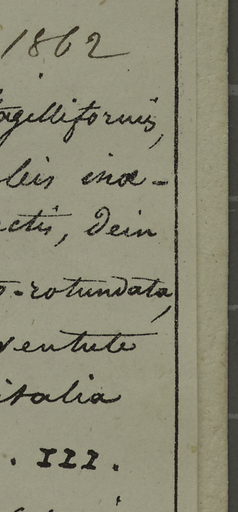 1862
flagelliformis,
inæ-
dein
-rotundata,
ventute
italia
. III.